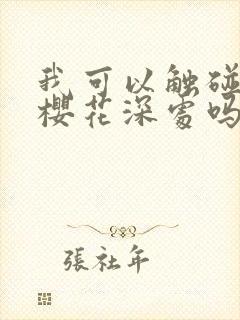 我可以触碰
樱花深处吗
張社年